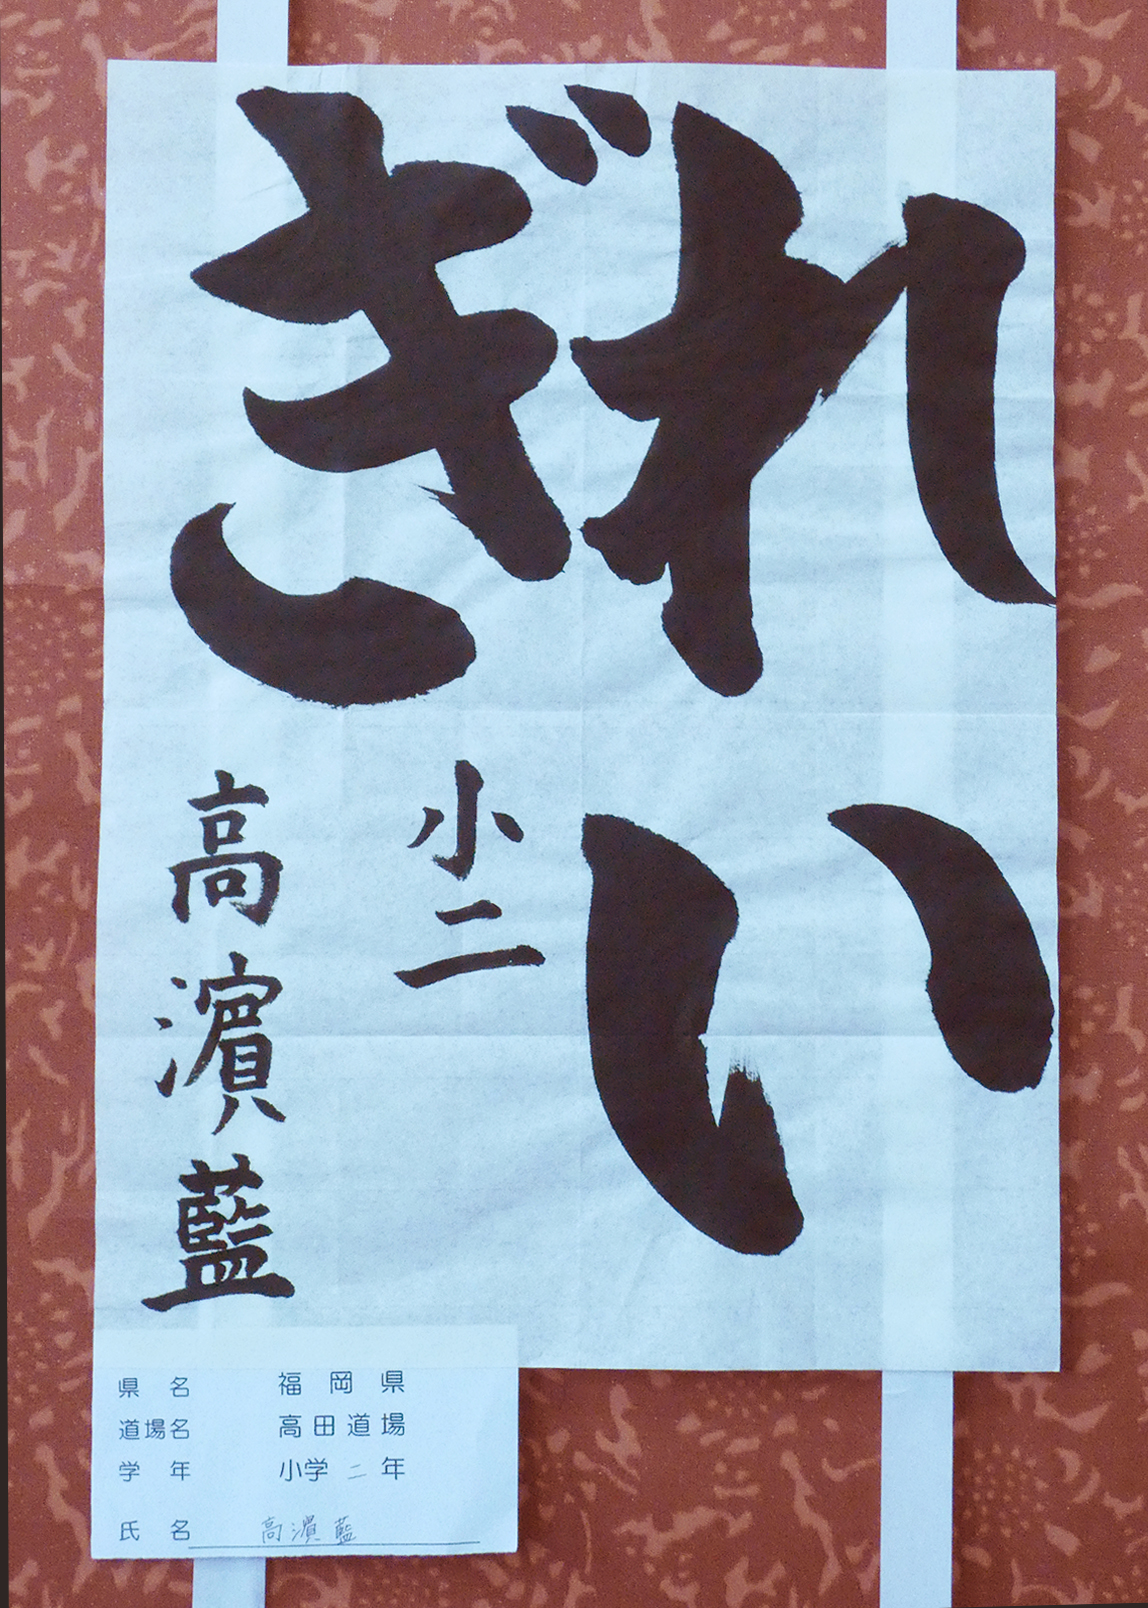 れい
ぎ
小二
高濵藍
県名 福岡県
道場名 高田道場
学年 小学二年
氏名 高濵藍